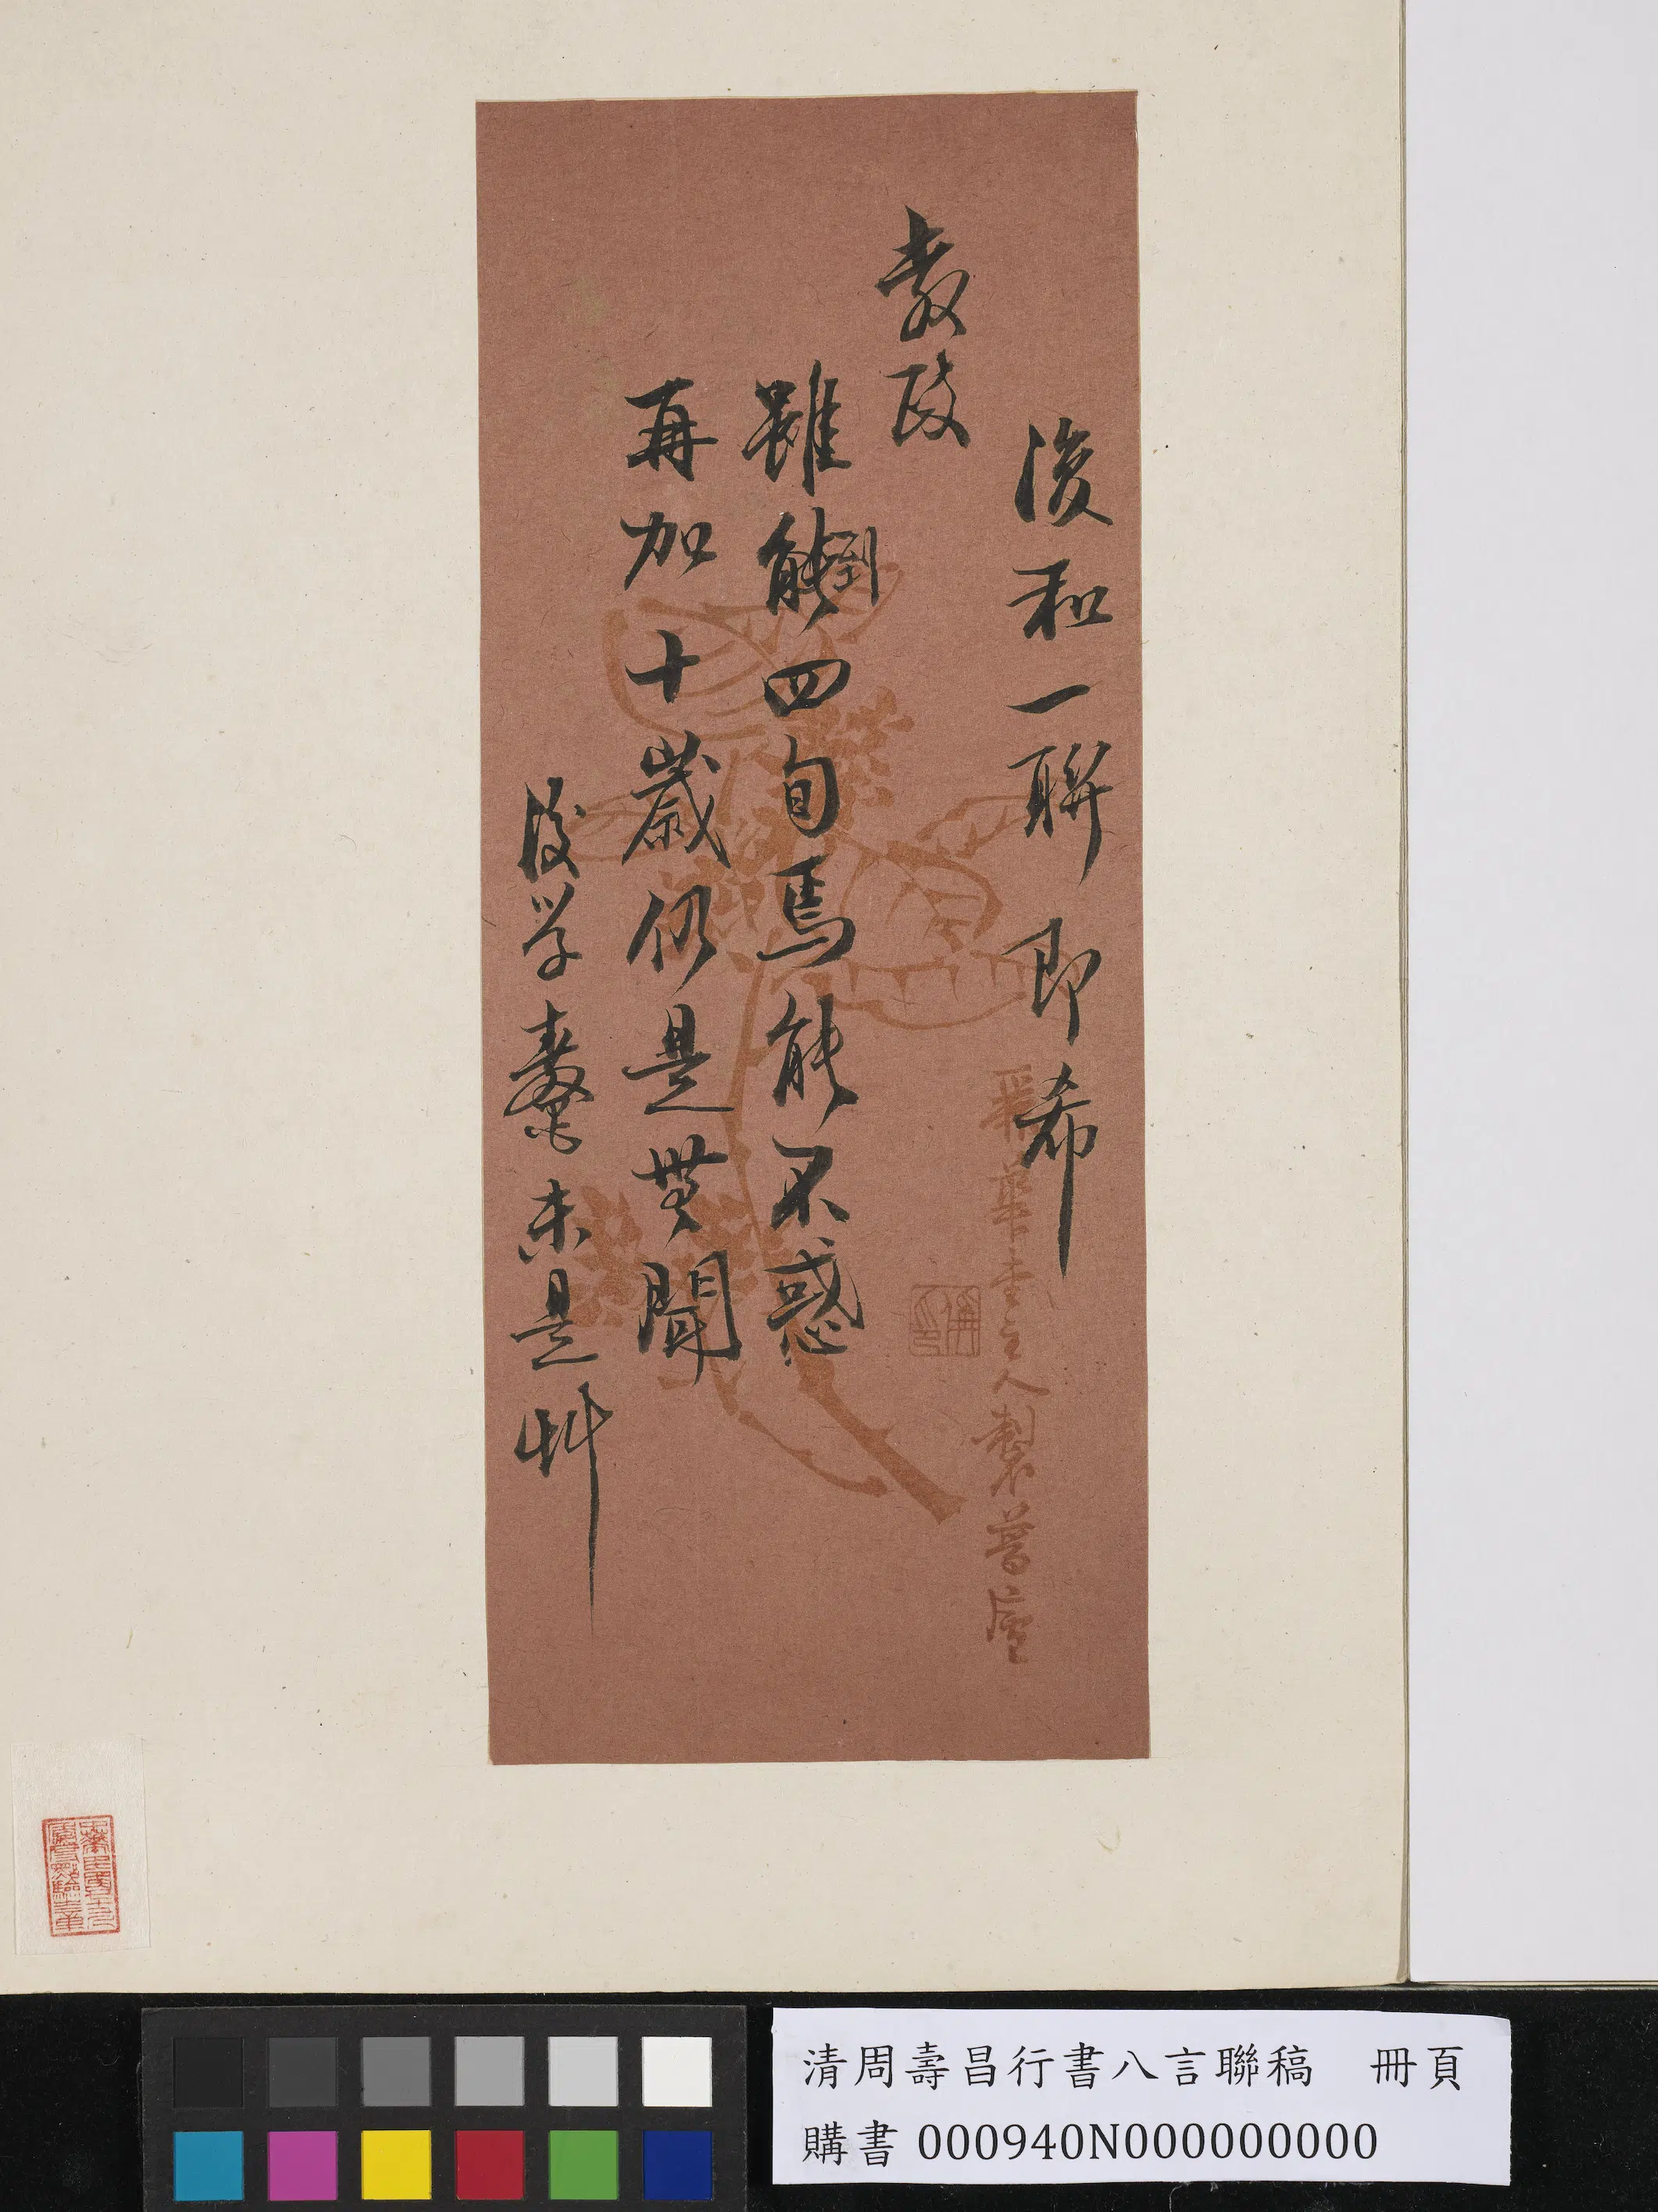 復和一聯即希
教政
雖能到四旬焉能不惑
再加十歲仍是無聞
後學未是艸
華主人製
清周壽昌行書八言聯稿 冊頁
購書 000940N000000000